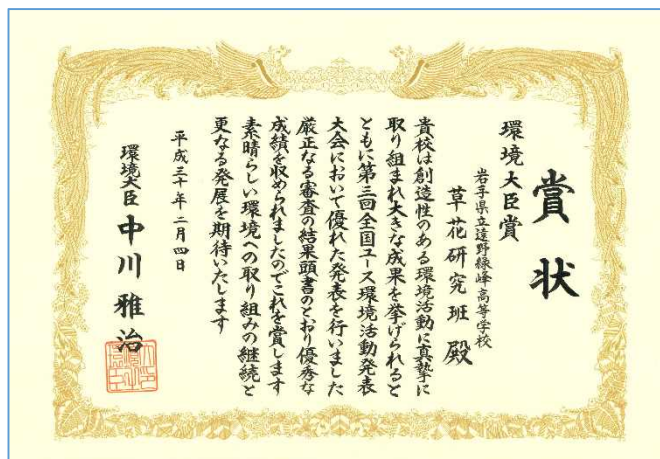 賞状
環境大臣賞
岩手県立遠野緑峰高等学校
草花研究班 殿
貴校は創造性のある環境活動に真摯に
取り組まれ大きな成果を挙げられると
ともに第三回全国ユース環境活動発表
大会において優れた発表を行いました
厳正なる審査の結果頭書のとおり優秀な
成績を収められましたのでこれを賞します
素晴らしい環境への取り組みの継続と
更なる発展を期待いたします
平成三十年二月四日
環境大臣 中川雅治